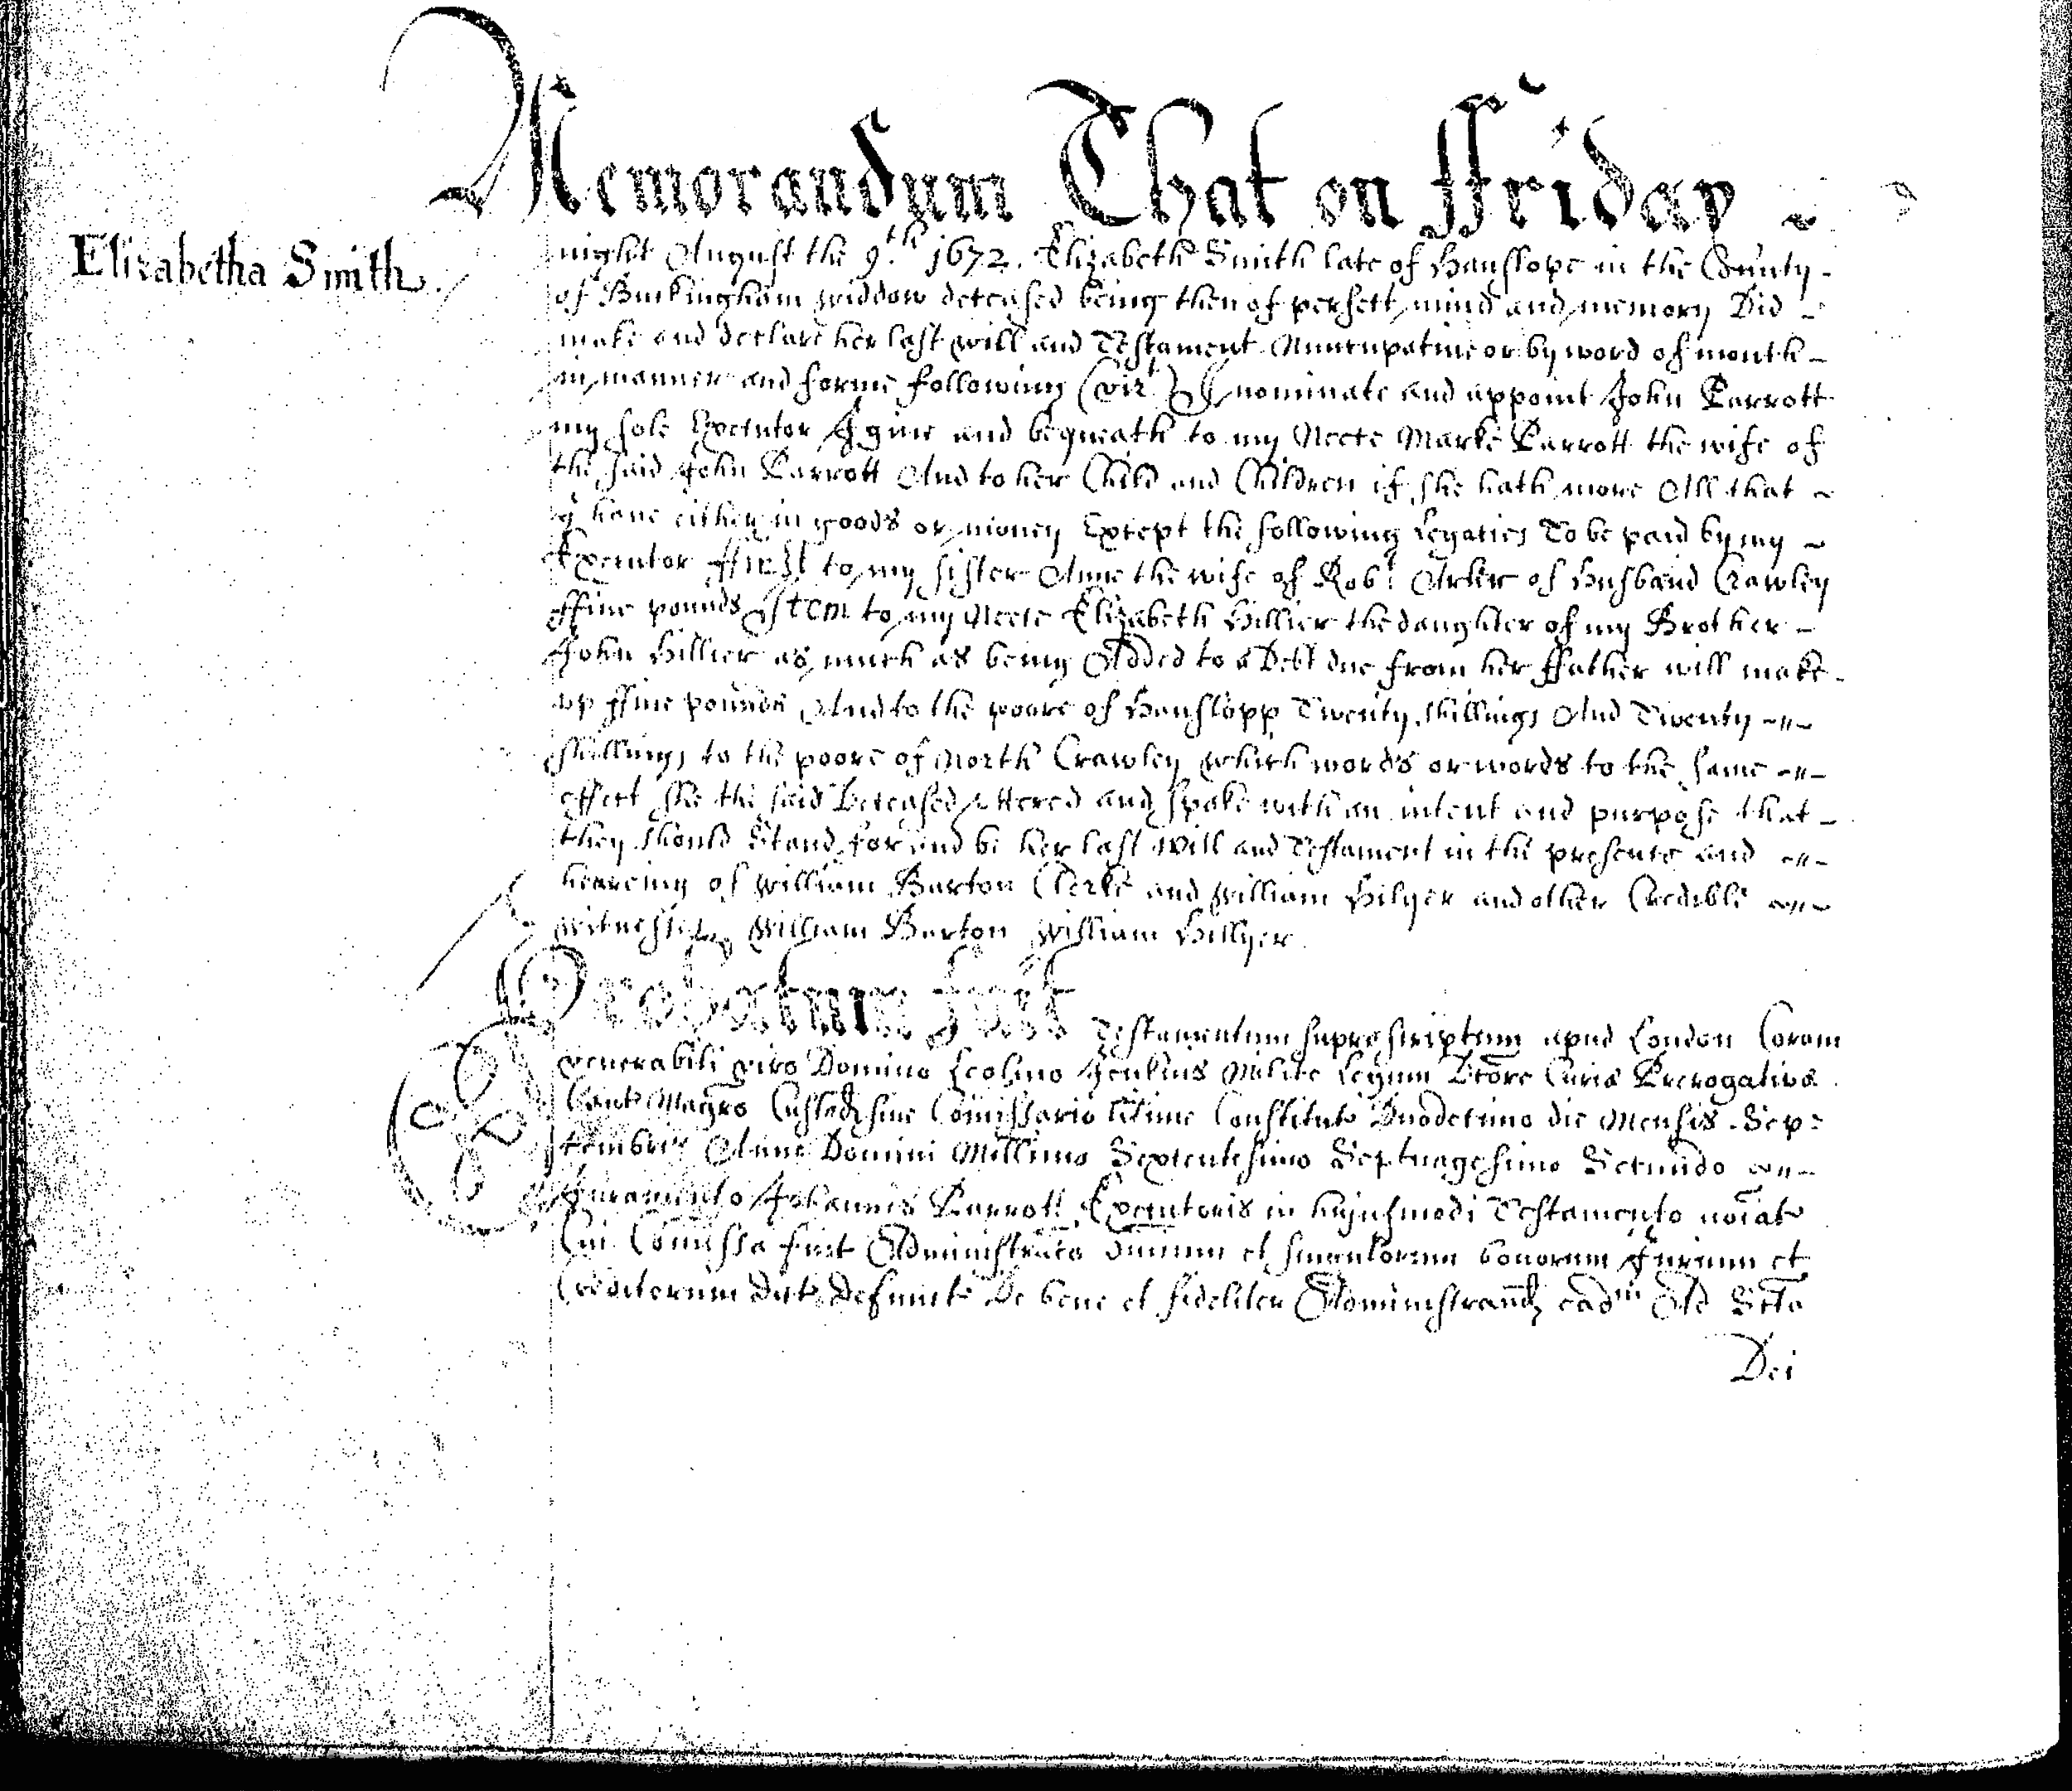 Memorandum That on ffriday
Elizabetha Smith
night August the 9th 1672. Elizabeth Smith late of Hanslope in the County
of Buckingham widdow deceased being then of perfect mind and memory Did
make and declare her last will and Testament Nuncupative or by word of mouth
in manner and forme following (vizt) I nominate and appoint John Parrott
my sole Executor I give and bequeath to my Neece Marke Parrott the wife of
the said John Parrott And to her Child and Children if she hath more All that
I have either in goods or money Except the following Legacies To be paid by my
Executor ffirst to my sister Anne the wife of Robt of Husband Crawley
ffive pounds Item to my Neece Elizabeth Hillier the daughter of my Brother
John Hillier as much as being Added to a Debt due from her ffather will make
up ffive pounds And to the poore of Hanslopp Twenty shillings And Twenty
shillings to the poore of North Crawley which words or words to the same
effect she the said Deceased uttered and spake with an intent and purpose that
they should Stand for and be her last Will and Testament in the presence and
heareing of William Barton Clerke and William Hilyer and other Credible
witnesses William Barton William Hillyer
Probatum fuit
Testamentum suprascriptum apud London Coram
venerabili viro Domino Leolino Jenkins Milite Legum Dtore Curiæ Prerogativæ
Cant Magro Custode sive Comissario ltime Constituto Duodecimo die Mensis Sep=
tembris Anno Domini Millimo Sexcentesimo Septuagesimo Secundo
Juramento Johannis Parrott Executoris in hujusmodi Testamento noiat
Cui Comissa fuit Administratio omnium et singulorum bonorum Jurium et
Creditorum dict defunct De bene et fideliter Administrand eadm Ad Scta
Dei